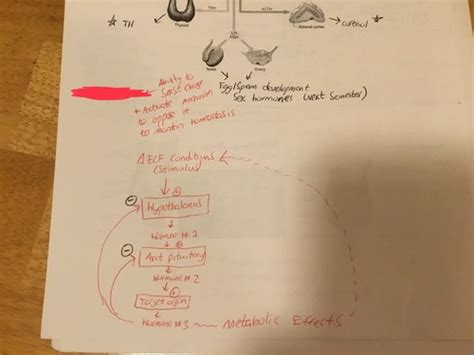 TSH
ACTH
★ TH
Thyroid
Adrenal cortex
→ cortisol ★
LH
FSH
Testis
Ovary
Egg/Sperm development
Sex hormones (next semester)
Ability to
Sense Change
+ Activate mechanism
to oppose it
to maintin homeostasis
Δ ECF conditions
(stimulus)
+
− Hypothalamus
Hormone # 2
+
− Ant pituitary
Hormone # 2
+
Target organ
Hormone # 3 → Metabolic Effects